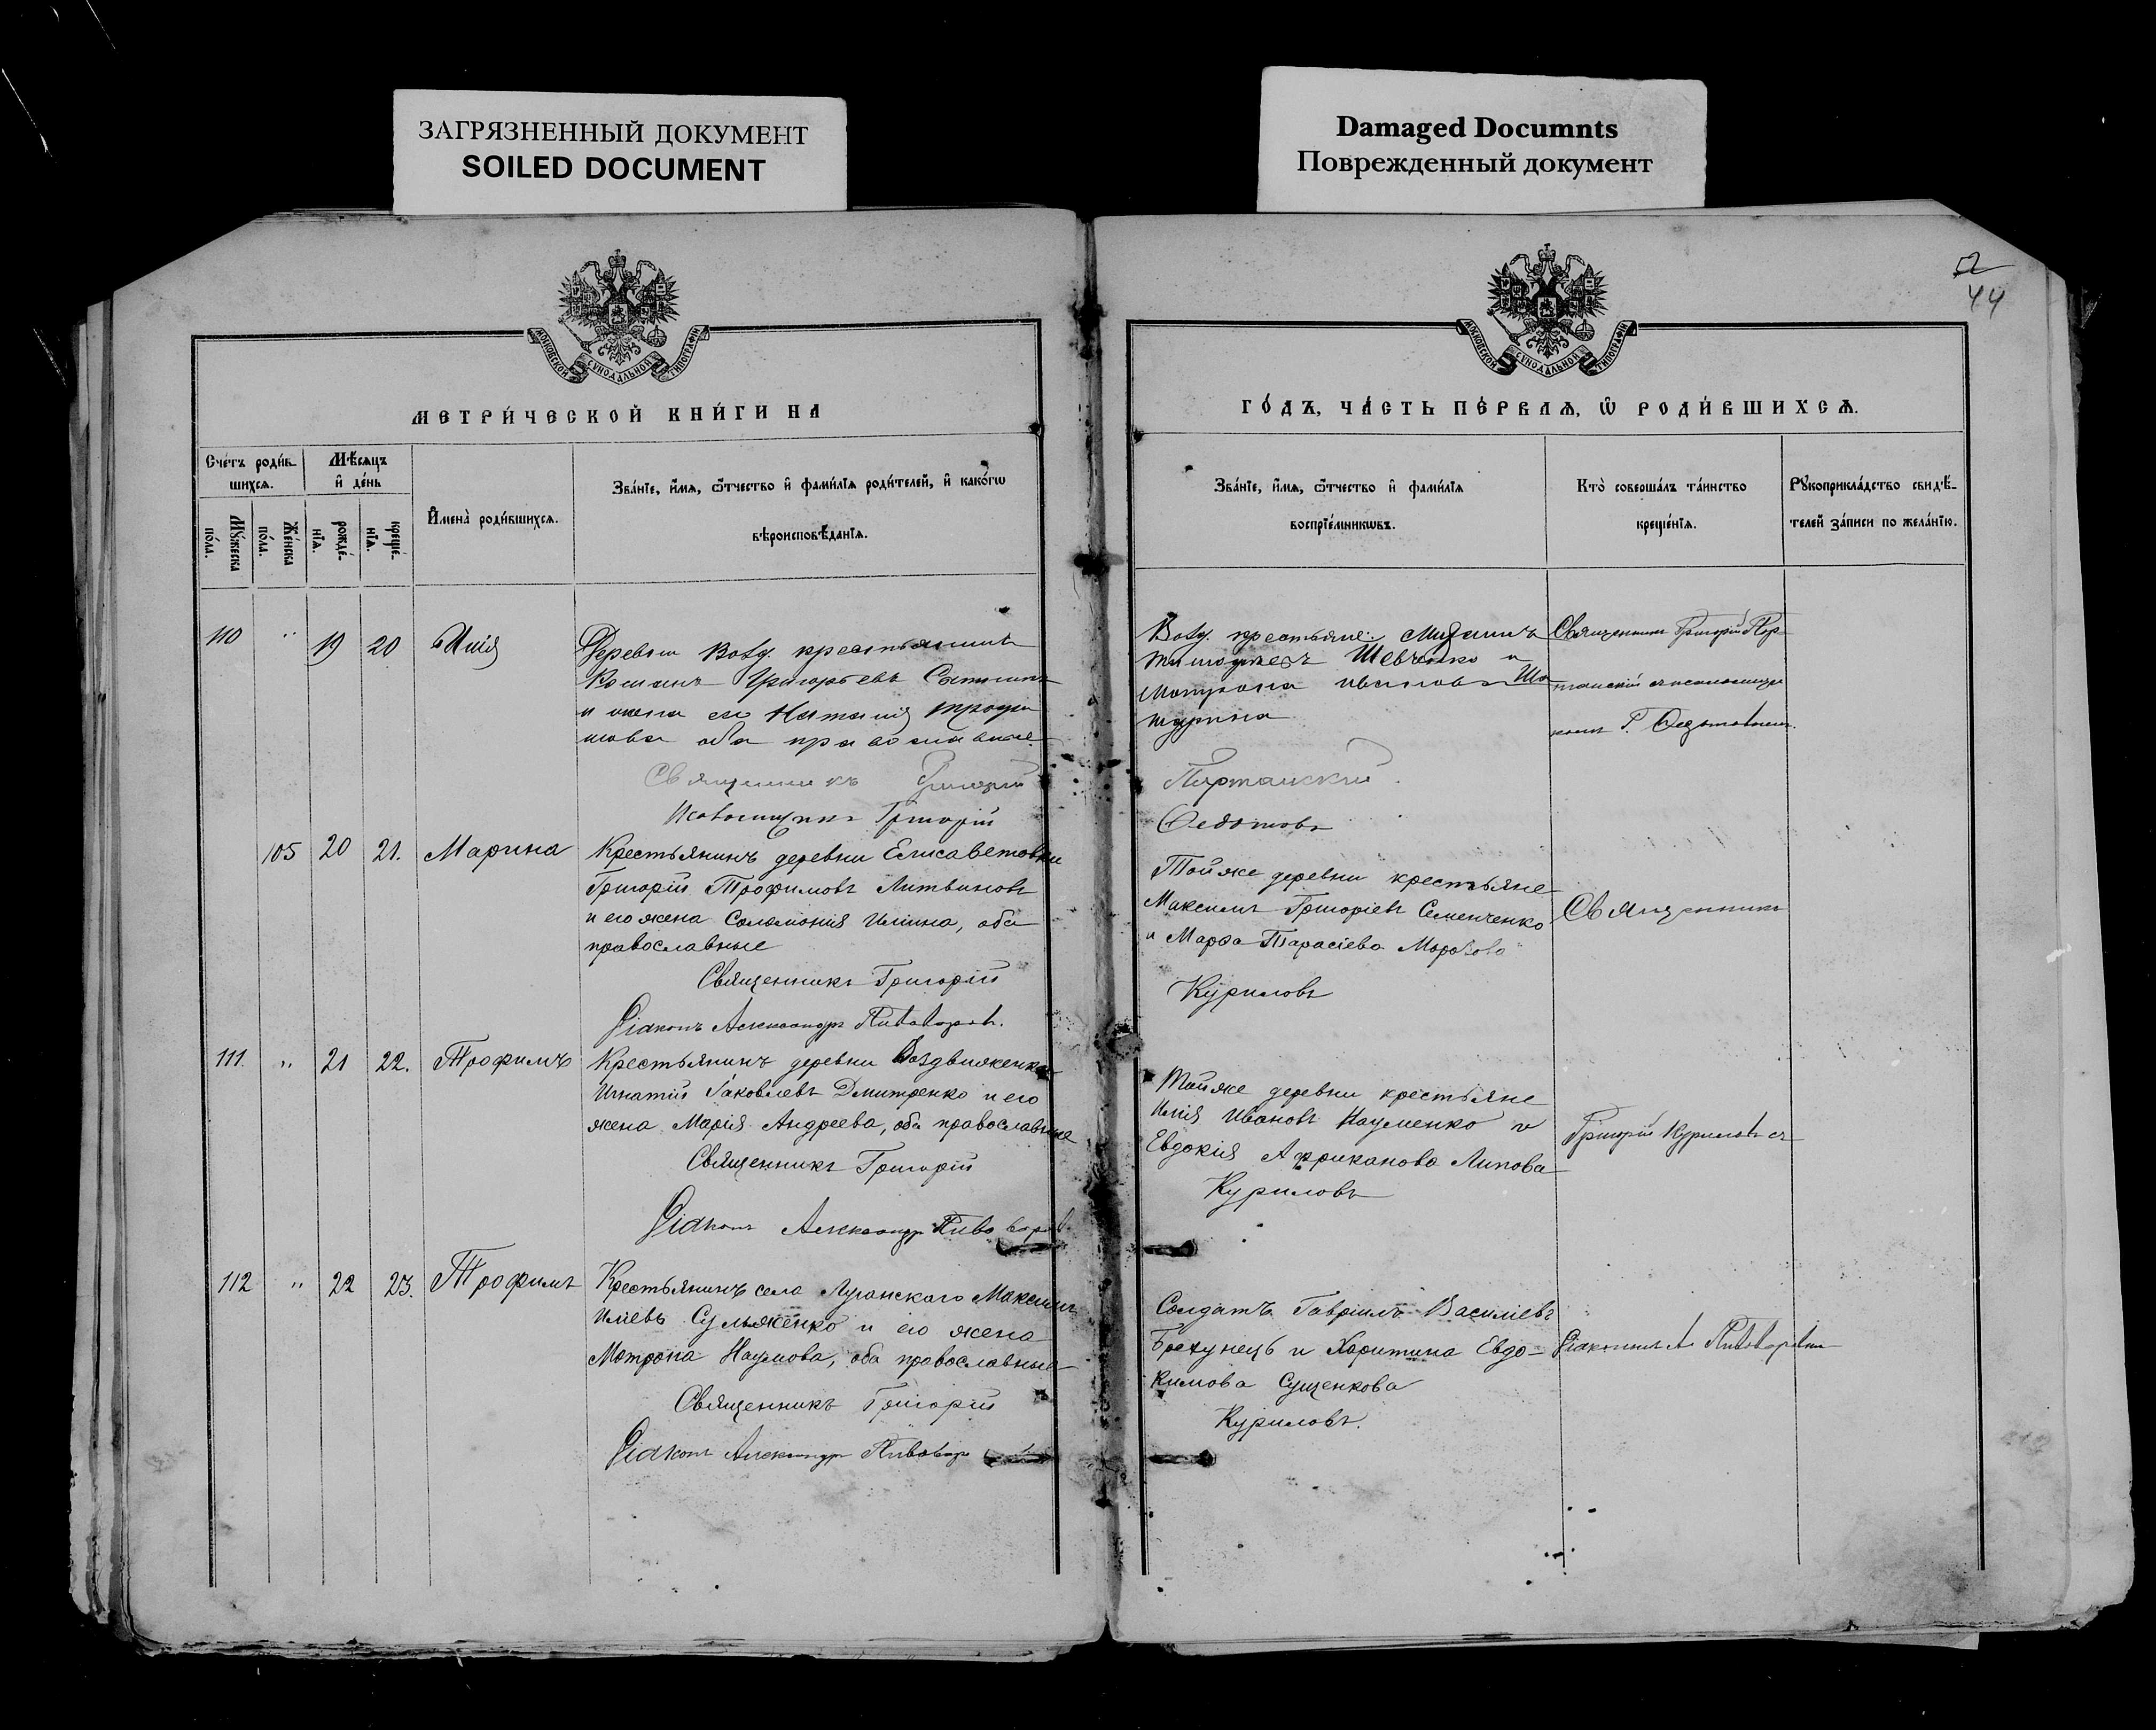 ЗАГРЯЗНЕННЫЙ ДОКУМЕНТ
SOILED DOCUMENT
Damaged Documnts
Поврежденный документ
44
МОСКОВСКОЙ СѴНОДАЛЬНОЙ ТИПОГРАФІИ
МЕТРИ́ЧЕСКОЙ КНИ́ГИ НА
Сче́тъ роди́в-
шихсѧ.
Мѣ́сѧцъ
и҆ де́нь
Мꙋ́жеска
по́ла.
Же́нска
по́ла.
рожде́-
нїѧ.
креще́-
нїѧ.
И҆мена̀ роди́вшихсѧ.
Зва́нїе, и҆́мѧ, ѿтчество и҆ фами́лїѧ роди́телей, и҆ како́гѡ
вѣроисповѣ́данїѧ.
110 " 19 20 Илія
Деревни Возд. крестьянинъ
Романъ Григорьевъ
и жена его Наталія Трофи
мова оба православные
Священникъ Григорій
Псаломщикъ Григорій
105 20 21. Марина
Крестьянинъ деревни Елисаветовки
Григорій Трофимовъ Литвиновъ
и его жена Соломонія Илiина, оба
православные
Священникъ Григорій
Діаконъ Александръ Пивоваровъ.
111. " 21 22. Трофимъ
Крестьянинъ деревни Воздвиженки
Игнатій Іаковлевъ Дмитренко и его
жена Марія Андреева, оба православные
Священникъ Григорій
Діаконъ Александръ Пивоваровъ
112 " 22 23. Трофимъ
Крестьянинъ села Луганскаго Максимъ
Иліевъ Сульженко и его жена
Мотрона Наумова, оба православные
Священникъ Григорій
Діаконъ Александръ Пивовар
МОСКОВСКОЙ СѴНОДАЛЬНОЙ ТИПОГРАФІИ
ГО́ДЪ, ЧА́СТЬ ПЕ́РВАѦ, Ѡ҆ РОДИ́ВШИХСѦ.
Зва́нїе, и҆́мѧ, ѿтчество и҆ фами́лїѧ
воспрїе́мникѡвъ.
Кто̀ соверша́лъ та́инство
креще́нїѧ.
Рꙋкоприкла́дство свидѣ́-
телей за́писи по жела́нїю.
Возд. крестьяне:
Тимофеевъ Шевченко и
Матрона Иванова
Священникъ Григорій Пор-
танскій съ псаломщи
комъ Г. Федотовымъ.
Портанскій.
Федотовъ
Тойже деревни крестьяне
Максимъ Григоріевъ Семенченко
и Марѳа Тарасіева Морозова
Священникъ
Куриловъ
Тойже деревни крестьяне
Илія Ивановъ Науменко и
Евдокія Африканова Липова
Григорій Куриловъ съ
Куриловъ
Солдатъ Гавріилъ Василіевъ
Брехунецъ и Харитина Евдо-
кимова Сущенкова
Діакономъ А. Пивоваровымъ
Куриловъ.